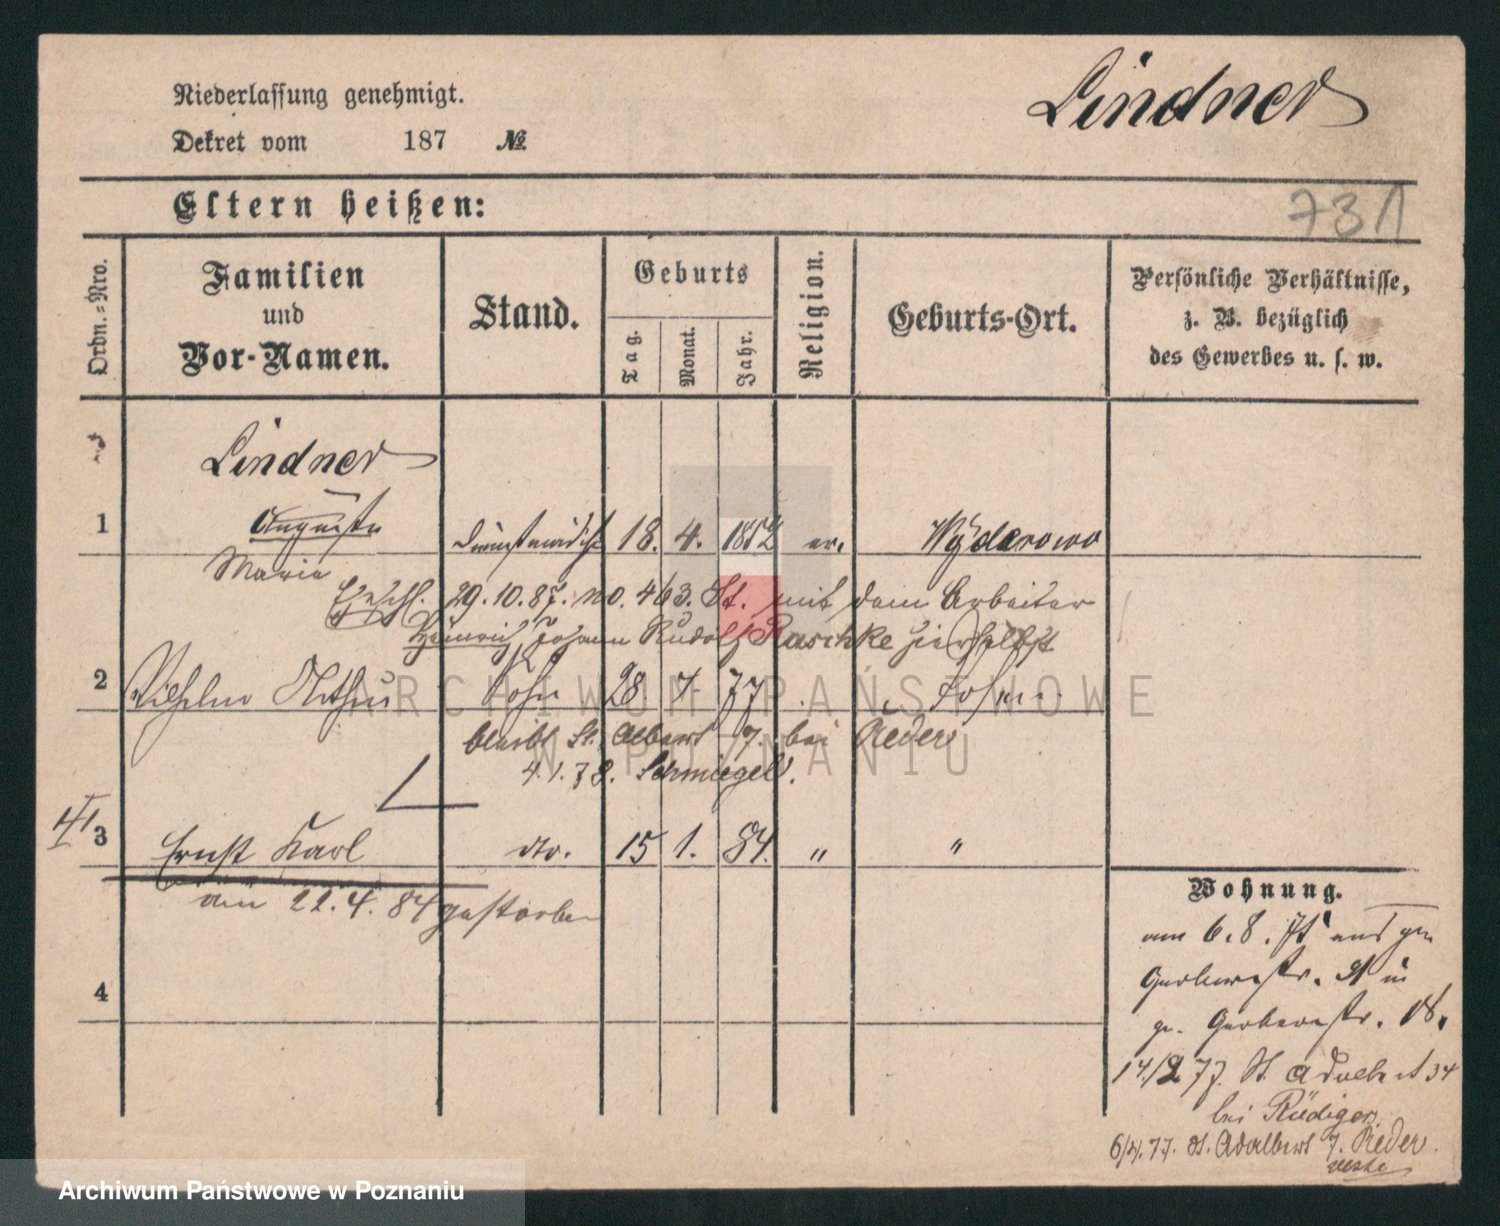 Niederlassung genehmigt.
Lindner
Dekret vom 187 №
Eltern heißen:
731
Ordn.-Nro.
Familien
und
Vor-Namen.
Stand.
Geburts
Tag.
Monat.
Jahr.
Religion.
Geburts-Ort.
Persönliche Verhältnisse,
z. B. bezüglich
des Gewerbes u. s. w.
Lindner
1 Auguste Dienstmädch 18. 4. 1852 ev.
Marie
29. 10. 87. no. 463. St. mit dem Arbeiter
Heinrich Johann Rudolf Raschke hierselbst
2 Wilhelm Arthur Sohn 28 7. 77
bleibt St. Adalbert 7. bei Rieder
4. 1. 78. Schmiegel.
3 Ernst Karl dto. 15 1. 84. " "
am 22. 4. 84 gestorben
4
Wohnung.
am 6. 8.
Gerberstr. in
Gerberstr. 18.
14/2 77. St. Adalbert 34
bei Rüdiger
77. St. Adalbert 7. Rieder
ARCHIWUM PAŃSTWOWE
W POZNANIU
Archiwum Państwowe w Poznaniu